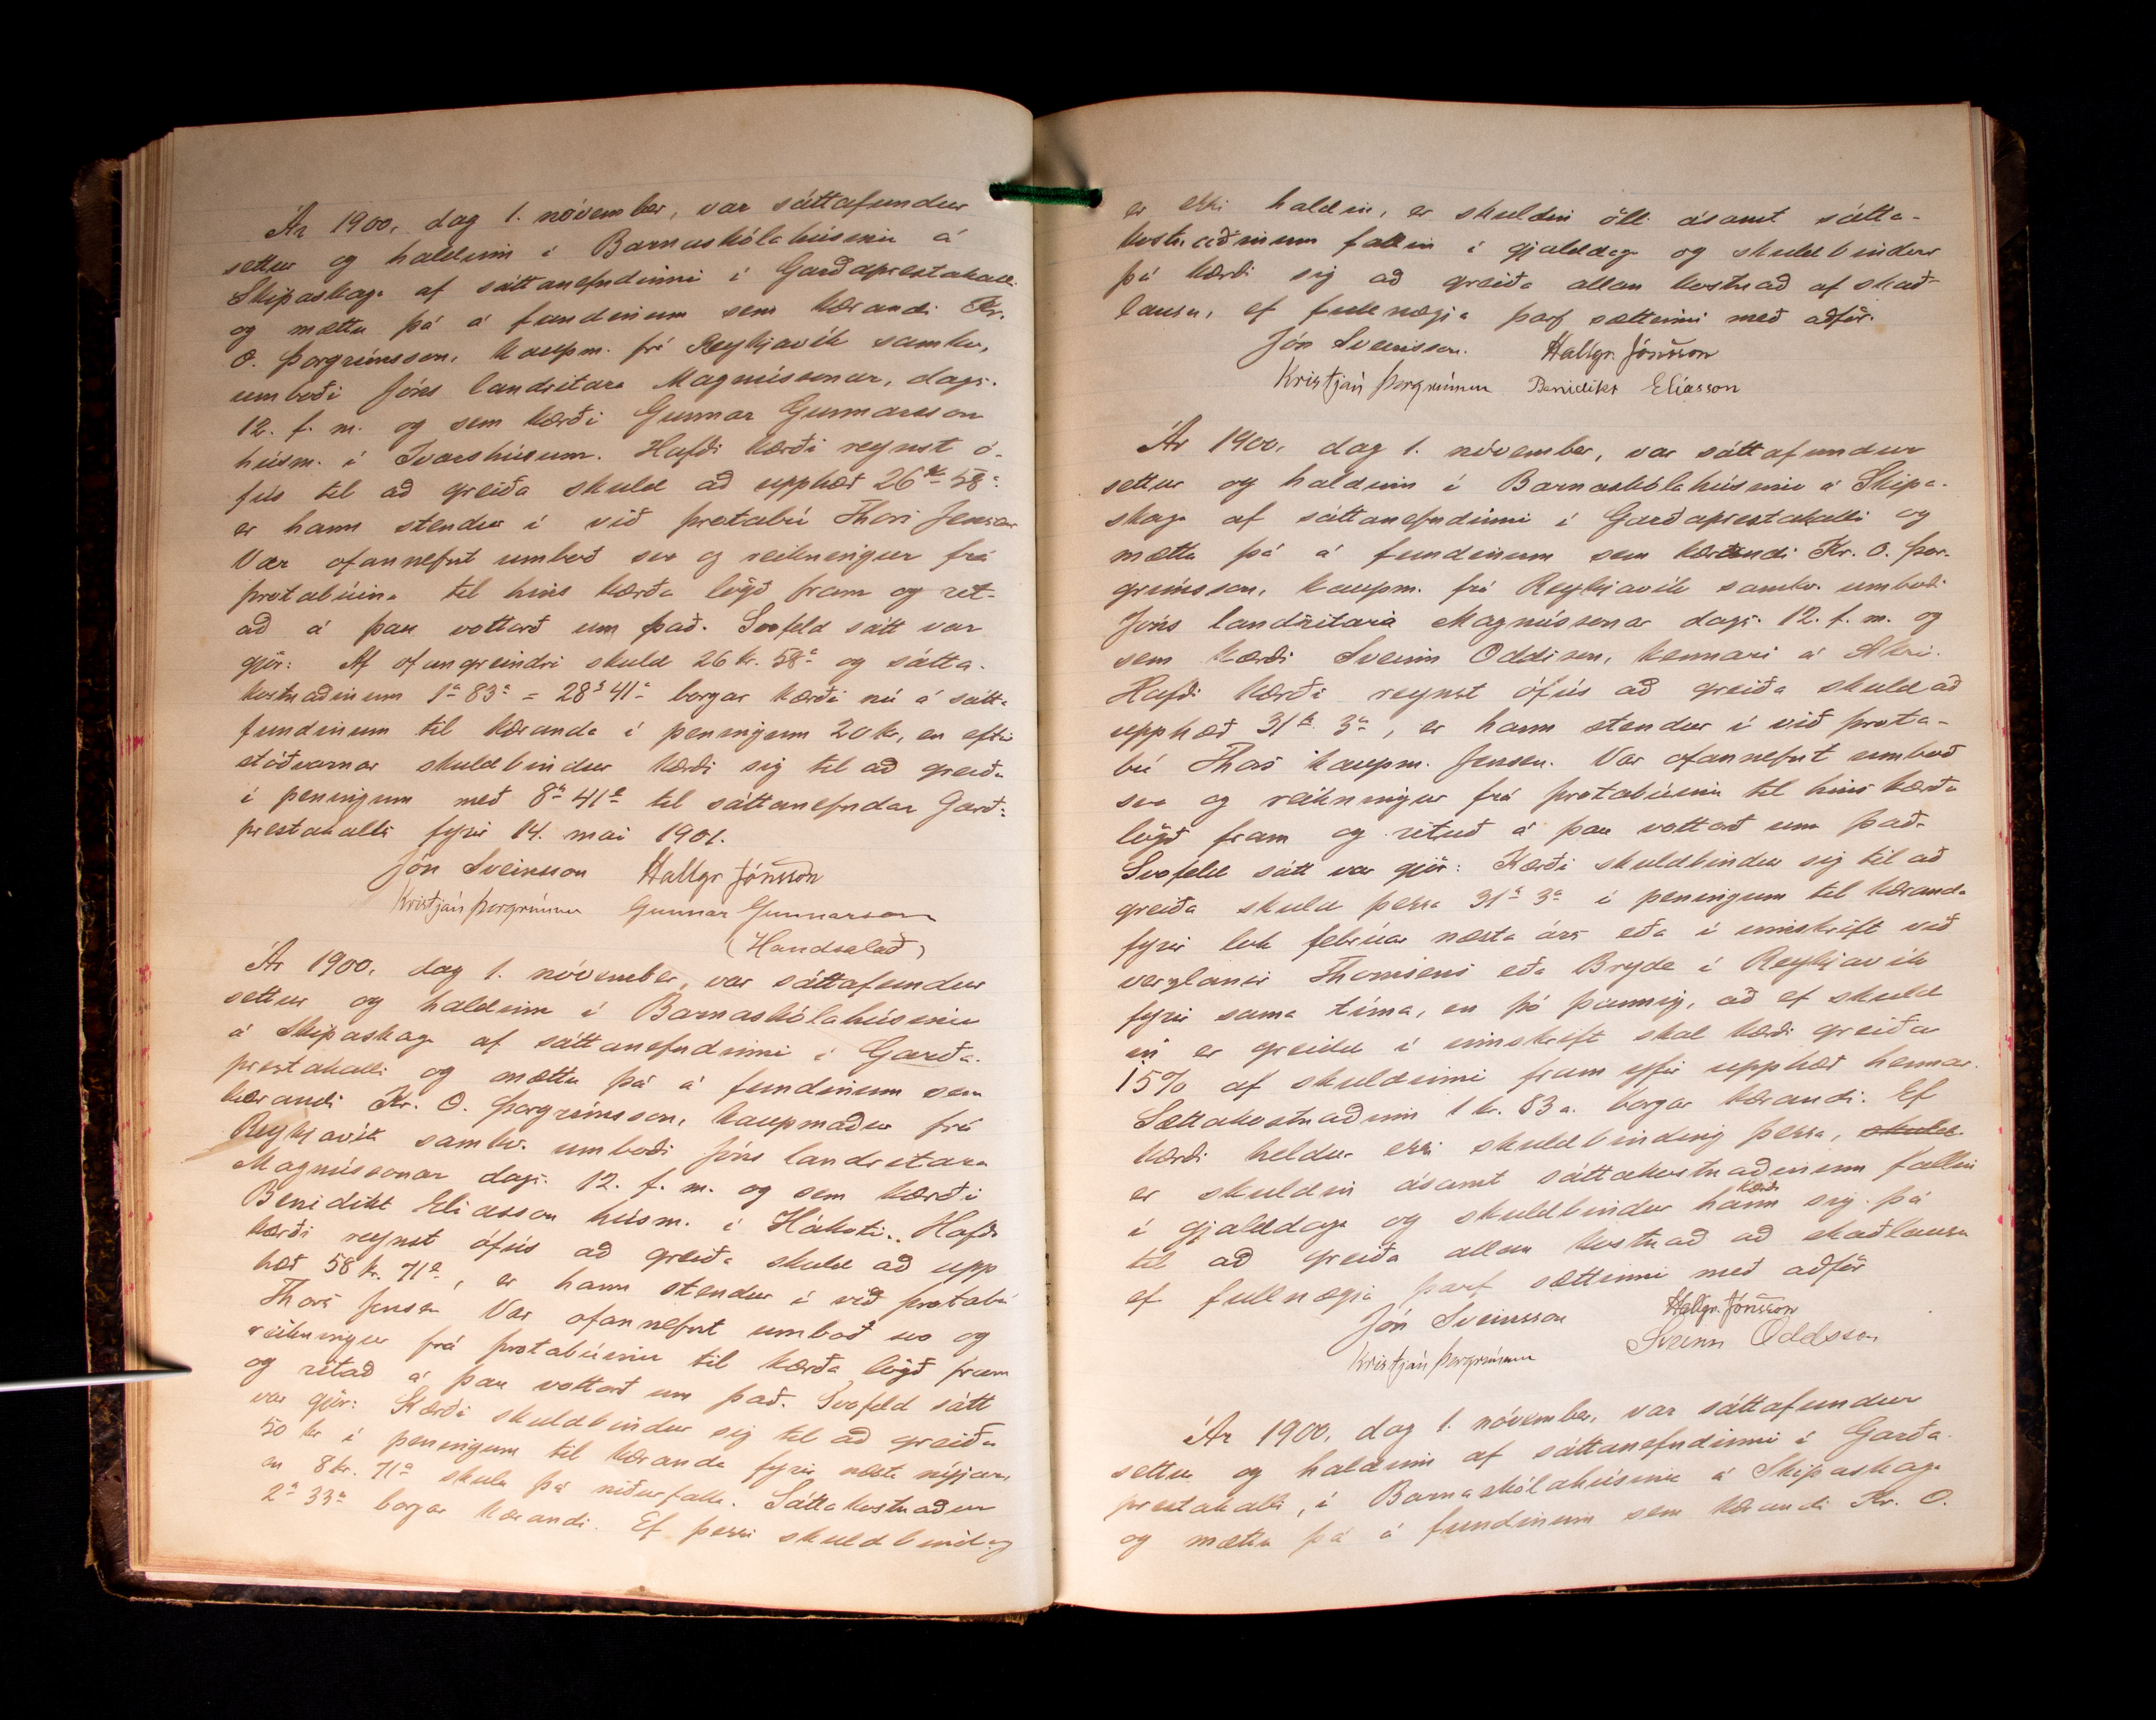 Ár 1900, dag 1. nóvember, var sáttafundur
settur og haldinn í Barnaskólahúsinu á
Skipaskaga af sáttanefndinni í Garðaprestakalli
og mættu þá á fundinum sem kærandi Kr.
O. Þorgrímsson, kaupm. frá Reykjavík samkv.
umboði Jóns landritara Magnússonar, dags.
12. f. m. og sem kærði Gunnar Gunnarsson
húsm. í Ívarshúsum. Hafði kærði reynst ó-
fús til að greiða skuld að upphæð 26 kr 58 a.
er hann stendur í við þrotabú Thors Jensen
Var ofannefnt umboð svo og reikningur frá
þrotabúinu til hins kærða lögð fram og rit-
að á þau vottorð um það. Svofeld sátt var
gjör: Af ofangreindri skuld 26 kr. 58 a og sátta-
kostnaðinum 1 kr 83 a = 28 kr 41 a borgar kærði nú á sátta
fundinum til kæranda í peningum 20 kr, en eftir
stöðvarnar skuldbindur kærði sig til að greiða
í peningum með 8 kr 41 a til sáttanefndar Garða-
prestakalls fyrir 14. mai 1901.
Jón Sveinsson Hallgr. Jónsson
Kristján Þorgrímsson Gunnar Gunnarsson
(Handsalað)
Ár 1900, dag 1. nóvember, var sáttafundur
settur og haldinn í Barnaskólahúsinu
á Skipaskaga af sáttanefndinni í Garða-
prestakalli og mættu þá á fundinum sem
kærandi Kr. O. Þorgrímsson, kaupmaður frá
Reykjavík samkv. umboði Jóns landritara
Magnússonar dags. 12. f. m. og sem kærði
Benidikt Elíasson húsm. í Hákoti. Hafði
kærði reynst ófús að greiða skuld að upp
hæð 58 kr. 71 a., er hann stendur í við þrotabú
Thors Jensen Var ofannefnt umboð svo og
reikningur frá þrotabúinu til kærða lögð fram
og ritað á þau vottorð um það. Svofeld sátt
var gjör: Kærði skuldbindur sig til að greiða
50 kr í peningum til kæranda fyrir næsta nýjár,
en 8 kr. 71 a skulu þá niðurfalla. Sáttakostnaður
2 kr 33 a borgar kærandi. Ef þessi skuldbinding
er ekki haldin, er skuldin öll ásamt sátta-
kostnaðinum fallin í gjalddaga og skuldbindur
þá kærði sig að greiða allan kostnað af skað-
lausu, ef fullnægja þarf sættinni með aðför.
Jón Sveinsson. Hallgr. Jónsson
Kristján Þorgrímsson Benidikt Elíasson
Ár 1900, dag 1. nóvember, var sáttafundur
settur og haldinn í Barnaskólahúsinu á Skipa-
skaga af sáttanefndinni í Garðaprestakalli og
mættu þá á fundinum sem kærandi Kr. O. Þor-
grímsson, kaupm. frá Reykjavík samkv. umboði
Jóns landritara Magnússonar dags. 12. f. m. og
sem kærði Sveinn Oddsson, kennari á Akri.
Hafði kærði reynst ófús að greiða skuld að
upphæð 31 kr. 3 a, er hann stendur í við þrota-
bú Thors kaupm. Jensen. Var ofannefnt umboð
svo og reikningur frá þrotabúinu til hins kærða
lögð fram og rituð á þau vottorð um það.
Svofeld sátt var gjör: Kærði skuldbindur sig til að
greiða skuld þessa 31 kr 3 a í peningum til kæranda
fyrir lok febrúar næsta árs eða í innskrift við
verzlanir Thomsens eða Bryde í Reykjavík
fyrir sama tíma, en þó þannig, að ef skuld
in er greidd í innskrift skal kærði greiða
15% af skuldinni fram yfir upphæð hennar.
Sáttakostnaðinn 1 kr. 83 a. borgar kærandi. Ef
kærði heldur ekki skuldbinding þessa, skuld
er skuldin ásamt sáttakostnaðinum fallin
í gjalddaga og skuldbindur hann kærði sig þá
til að greiða allan kostnað að skaðlausu
ef fullnægja þarf sættinni með aðför
Jón Sveinsson Hallgr. Jónsson
Kristján Þorgrímsson Sveinn Oddsson
Ár 1900, dag 1. nóvember, var sáttafundur
settur og haldinn af sáttanefndinni í Garða-
prestakalli, í Barnaskólahúsinu á Skipaskaga
og mættu þá á fundinum sem kærandi Kr. O.